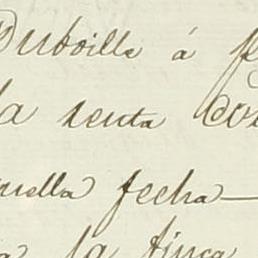 Duboille á
la renta co
uella fecha—
la finca